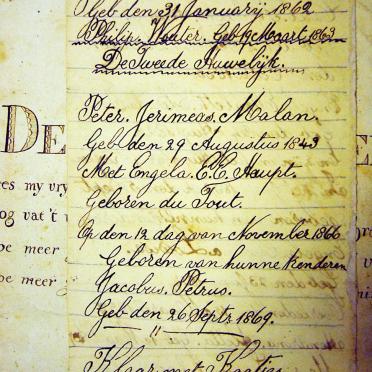 Geb den 31 Januarij 1862
Philip. Wouter. Geb 19 Maart 1863
De Tweede Huwelijk.
Peter. Jerimeas. Malan.
Geb den 29 Augustus 1843
Met Engela. E.E. Haupt.
Geboren du Tout.
Op den 12 dag van November 1866
Geboren van hunne Kenderen
Jacobus. Petrus.
Geb den 26 Septr 1869.
"
Klaar met
DE
es my vry
og vat't
be meer
be meer